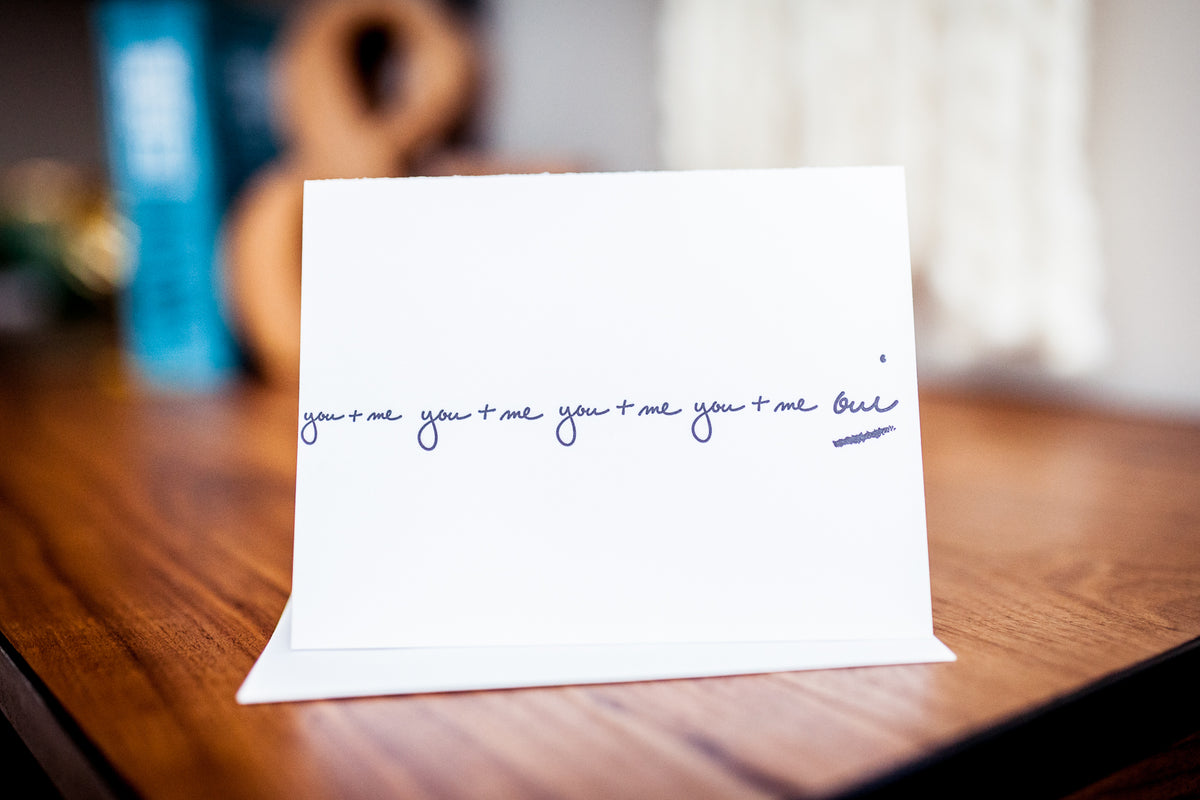 you + me you + me you + me you + me oui